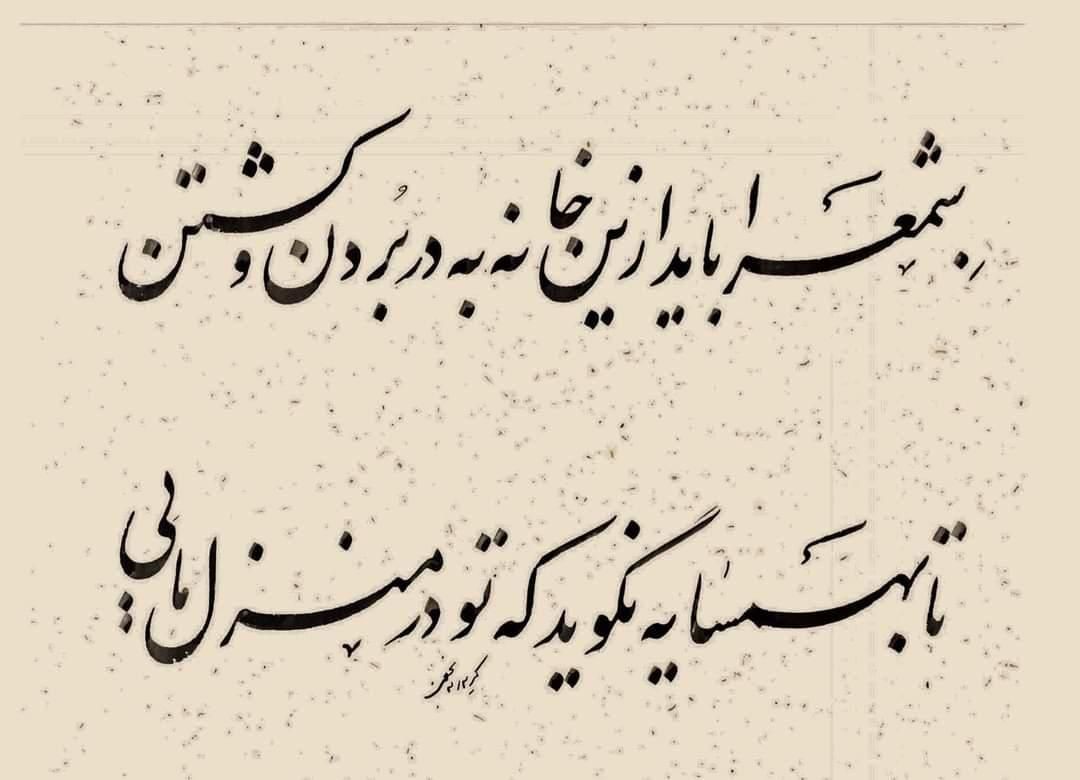 شمع را باید ازین خانه به در بُردن و کشتن
تا بهمسایه نگوید که تو در منزل مایی